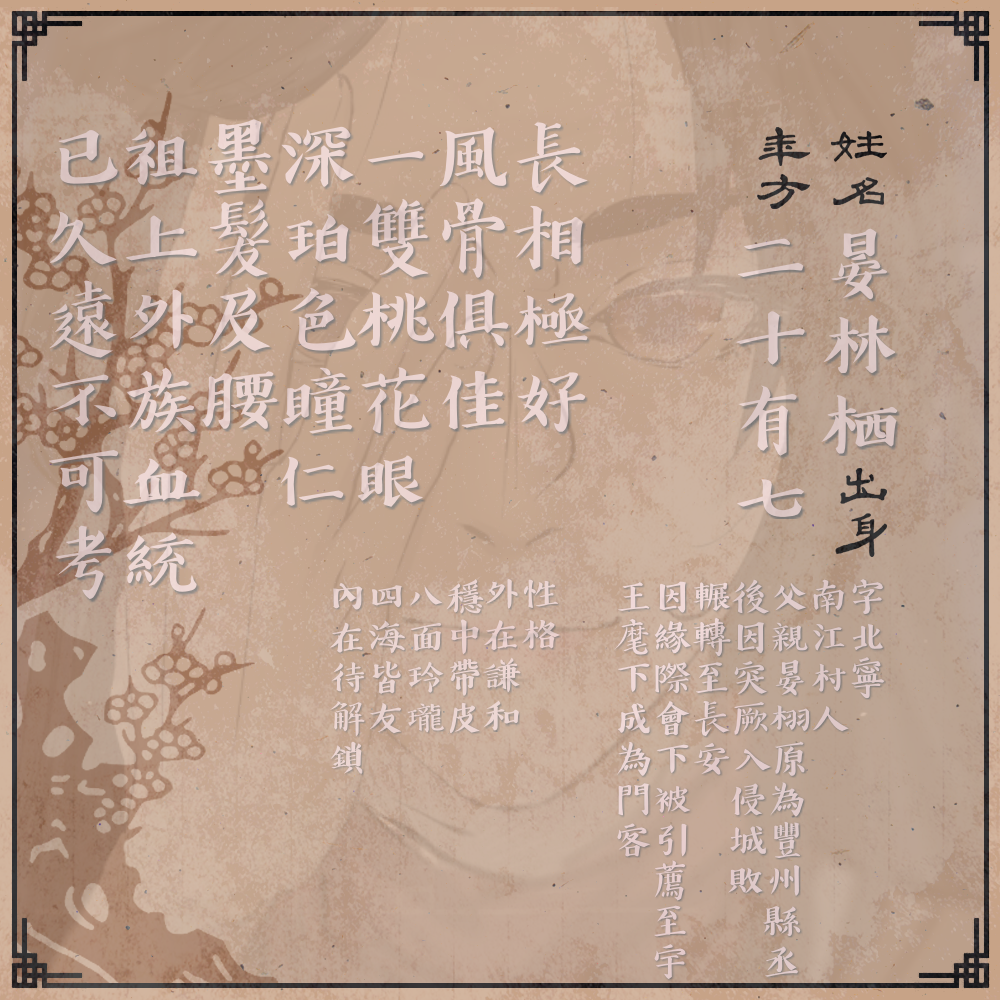 姓名 晏林栖 出身
年方 二十有七
字北寧
南江村人
父親晏栩原為豐州縣丞
後因突厥入侵城敗
輾轉至長安
因緣際會下被引薦至宇
王麾下成為門客
長相極好
風骨俱佳
一雙桃花眼
深珀色瞳仁
墨髮及腰
祖上外族血統
已久遠不可考
性格
外在謙和
穩中帶皮
八面玲瓏
四海皆友
內在待解鎖